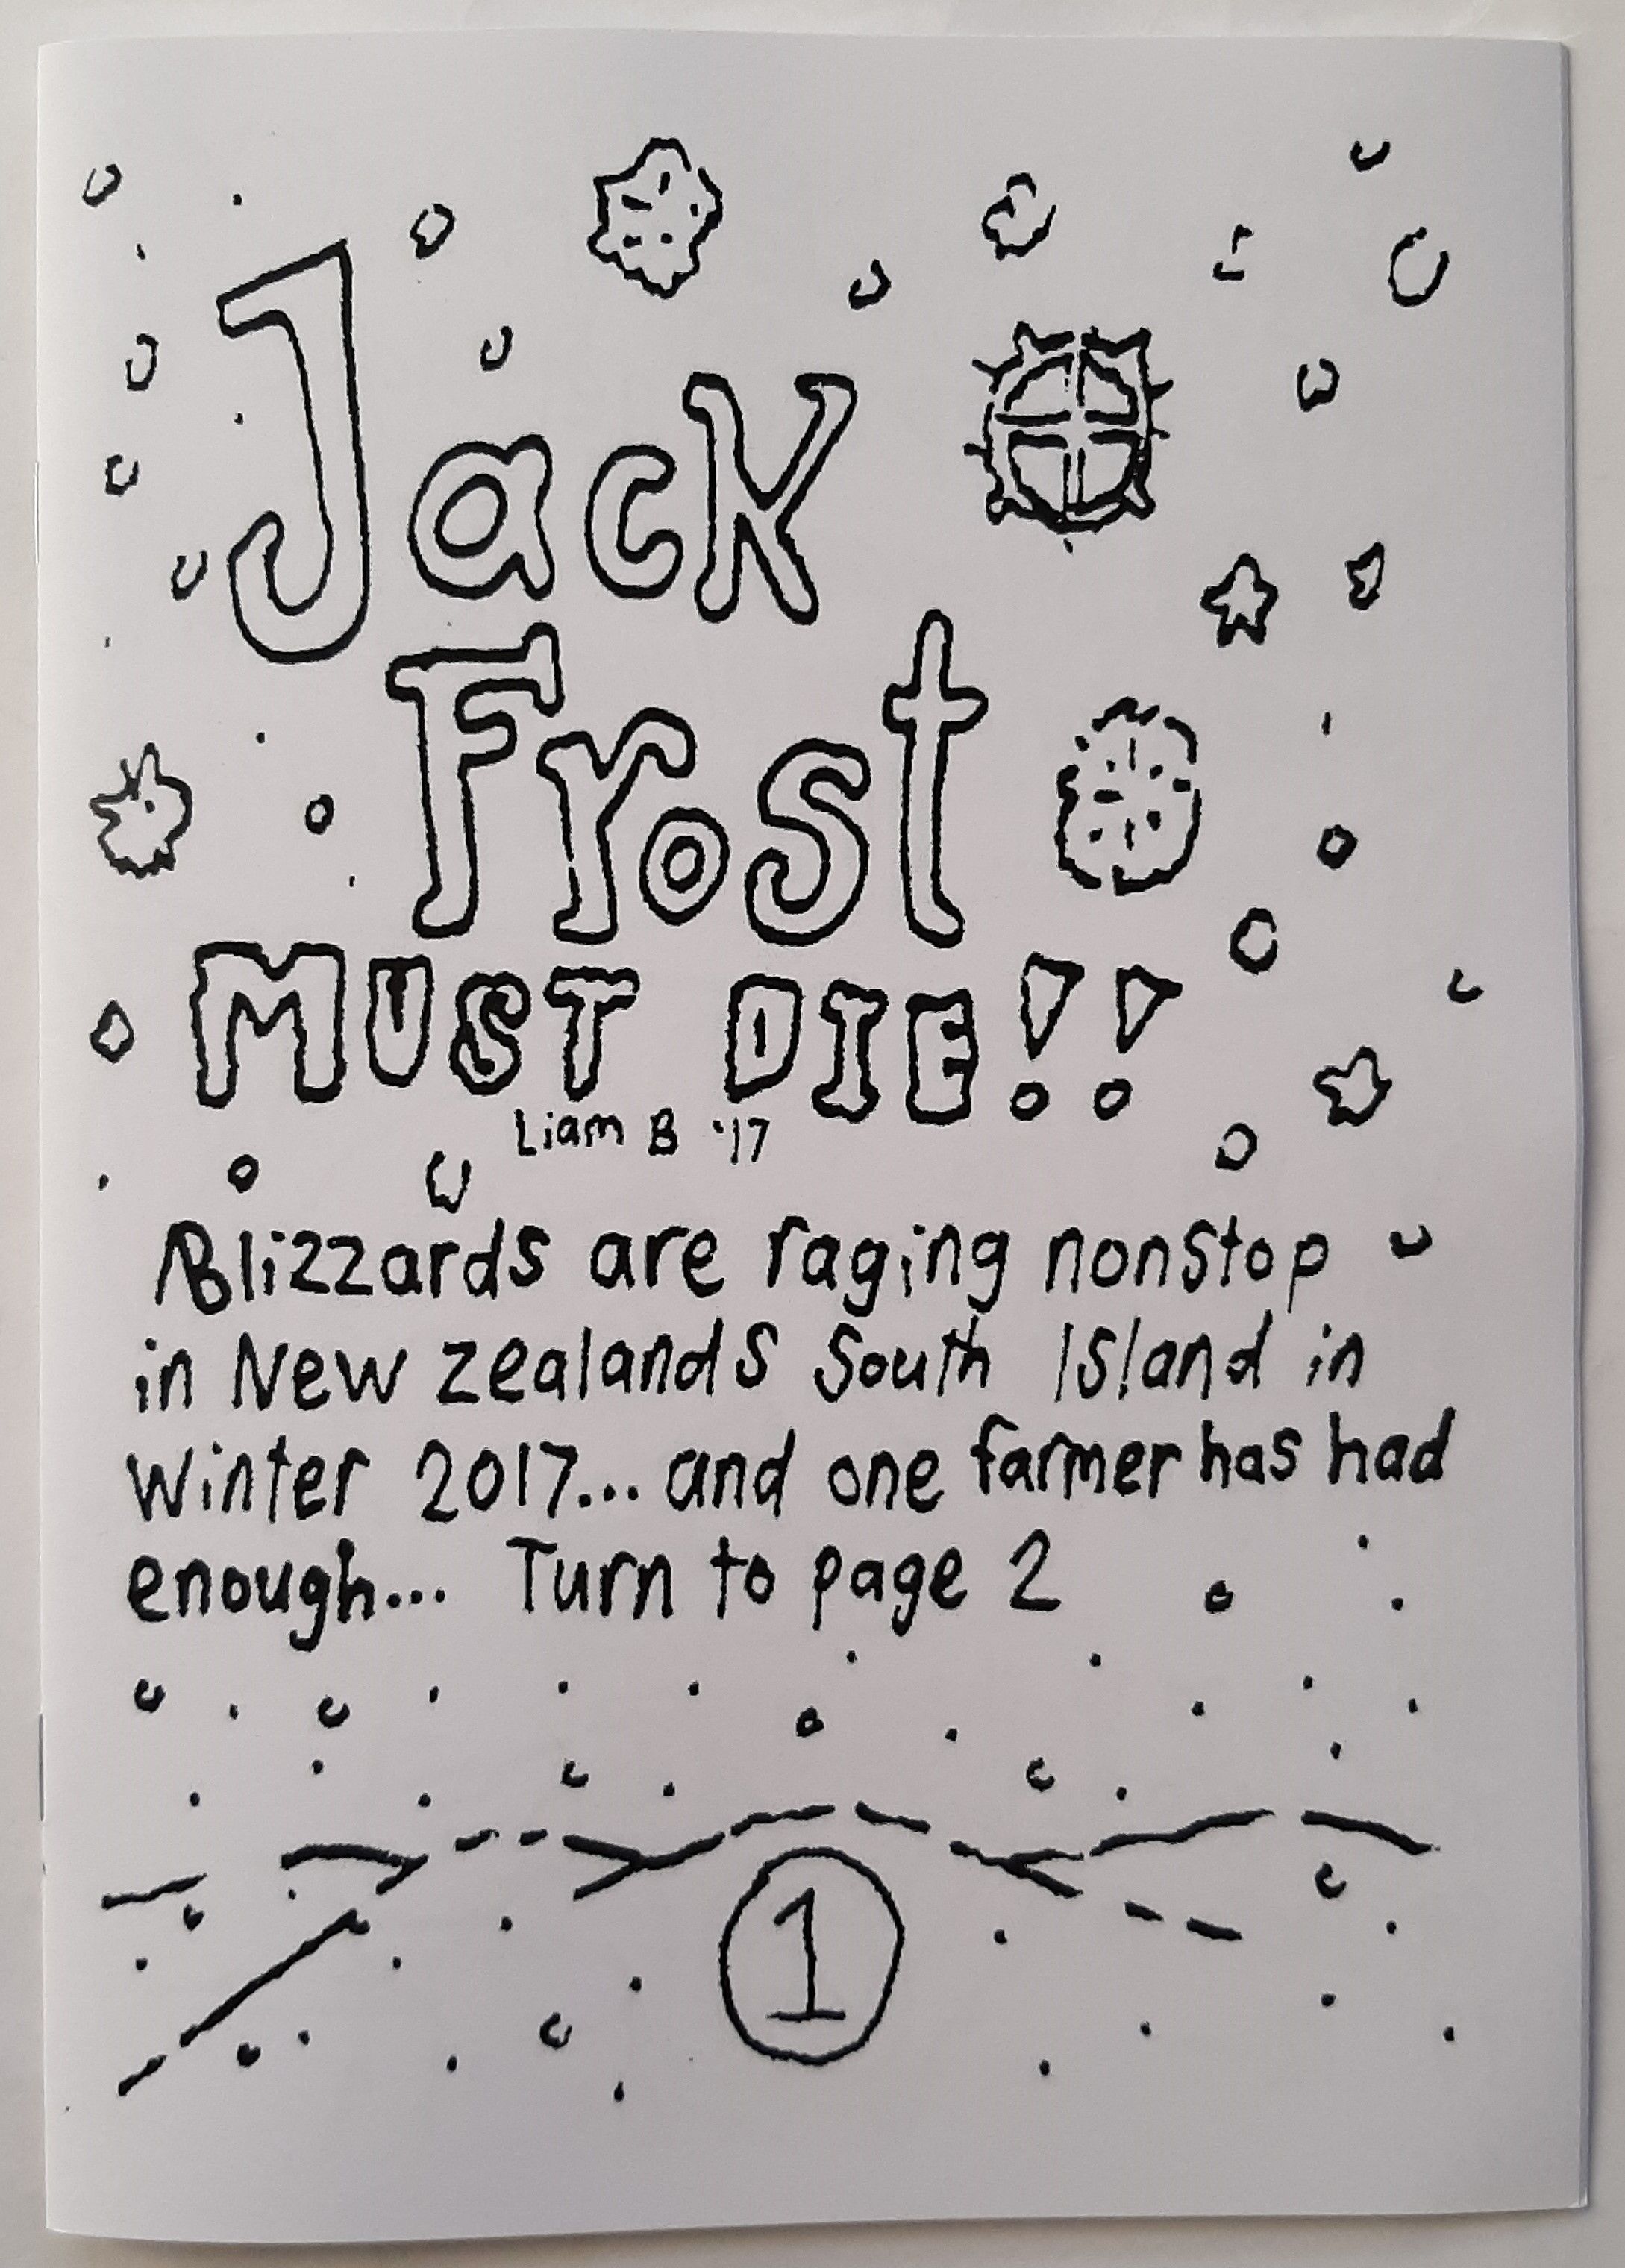 Jack
Frost
MUST DIE!!
Liam B '17
Blizzards are raging nonstop
in New zealands South Island in
Winter 2017... and one farmer has had
enough... Turn to page 2
1